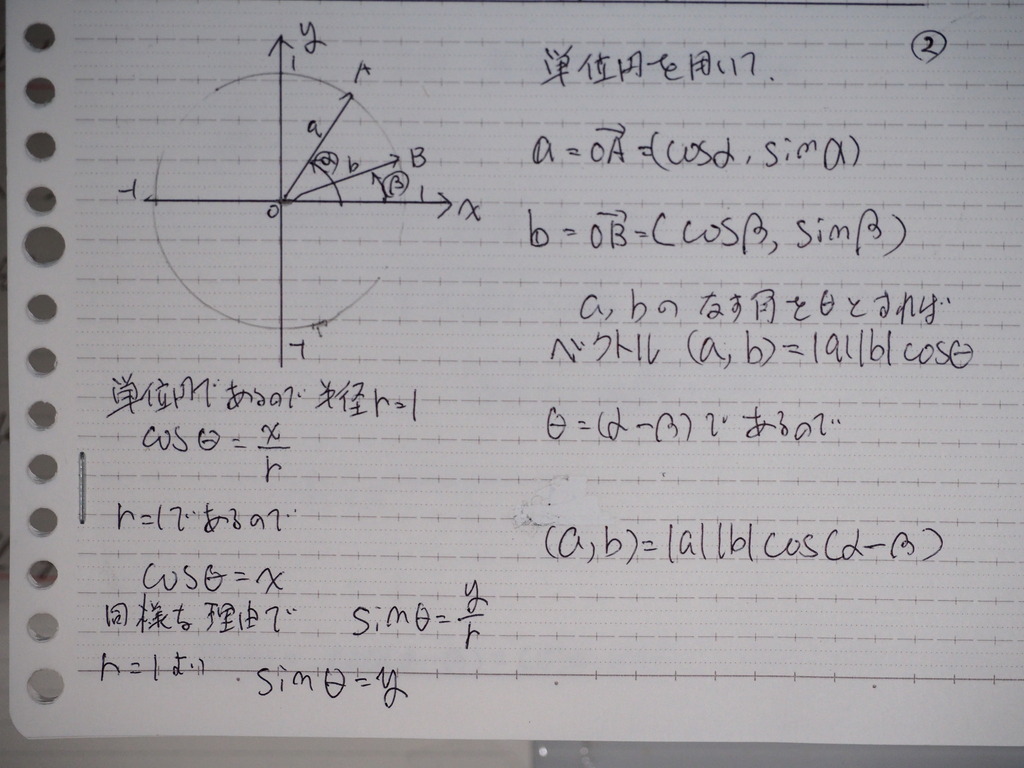 ②
y
1
A
a
α
b
B
β
-1
O
1
x
-1
単位円であるので 半径r=1
cosθ = x/r
r=1であるので
cosθ=x
同様な理由で sinθ=y/r
r=1より sinθ=y
単位円を用いて.
a=OA→=(cosα, sinα)
b=OB→=(cosβ, sinβ)
a, bのなす角をθとすれば
ベクトル (a, b)=|a||b|cosθ
θ=(α-β)であるので
(a, b)=|a||b|cos(α-β)